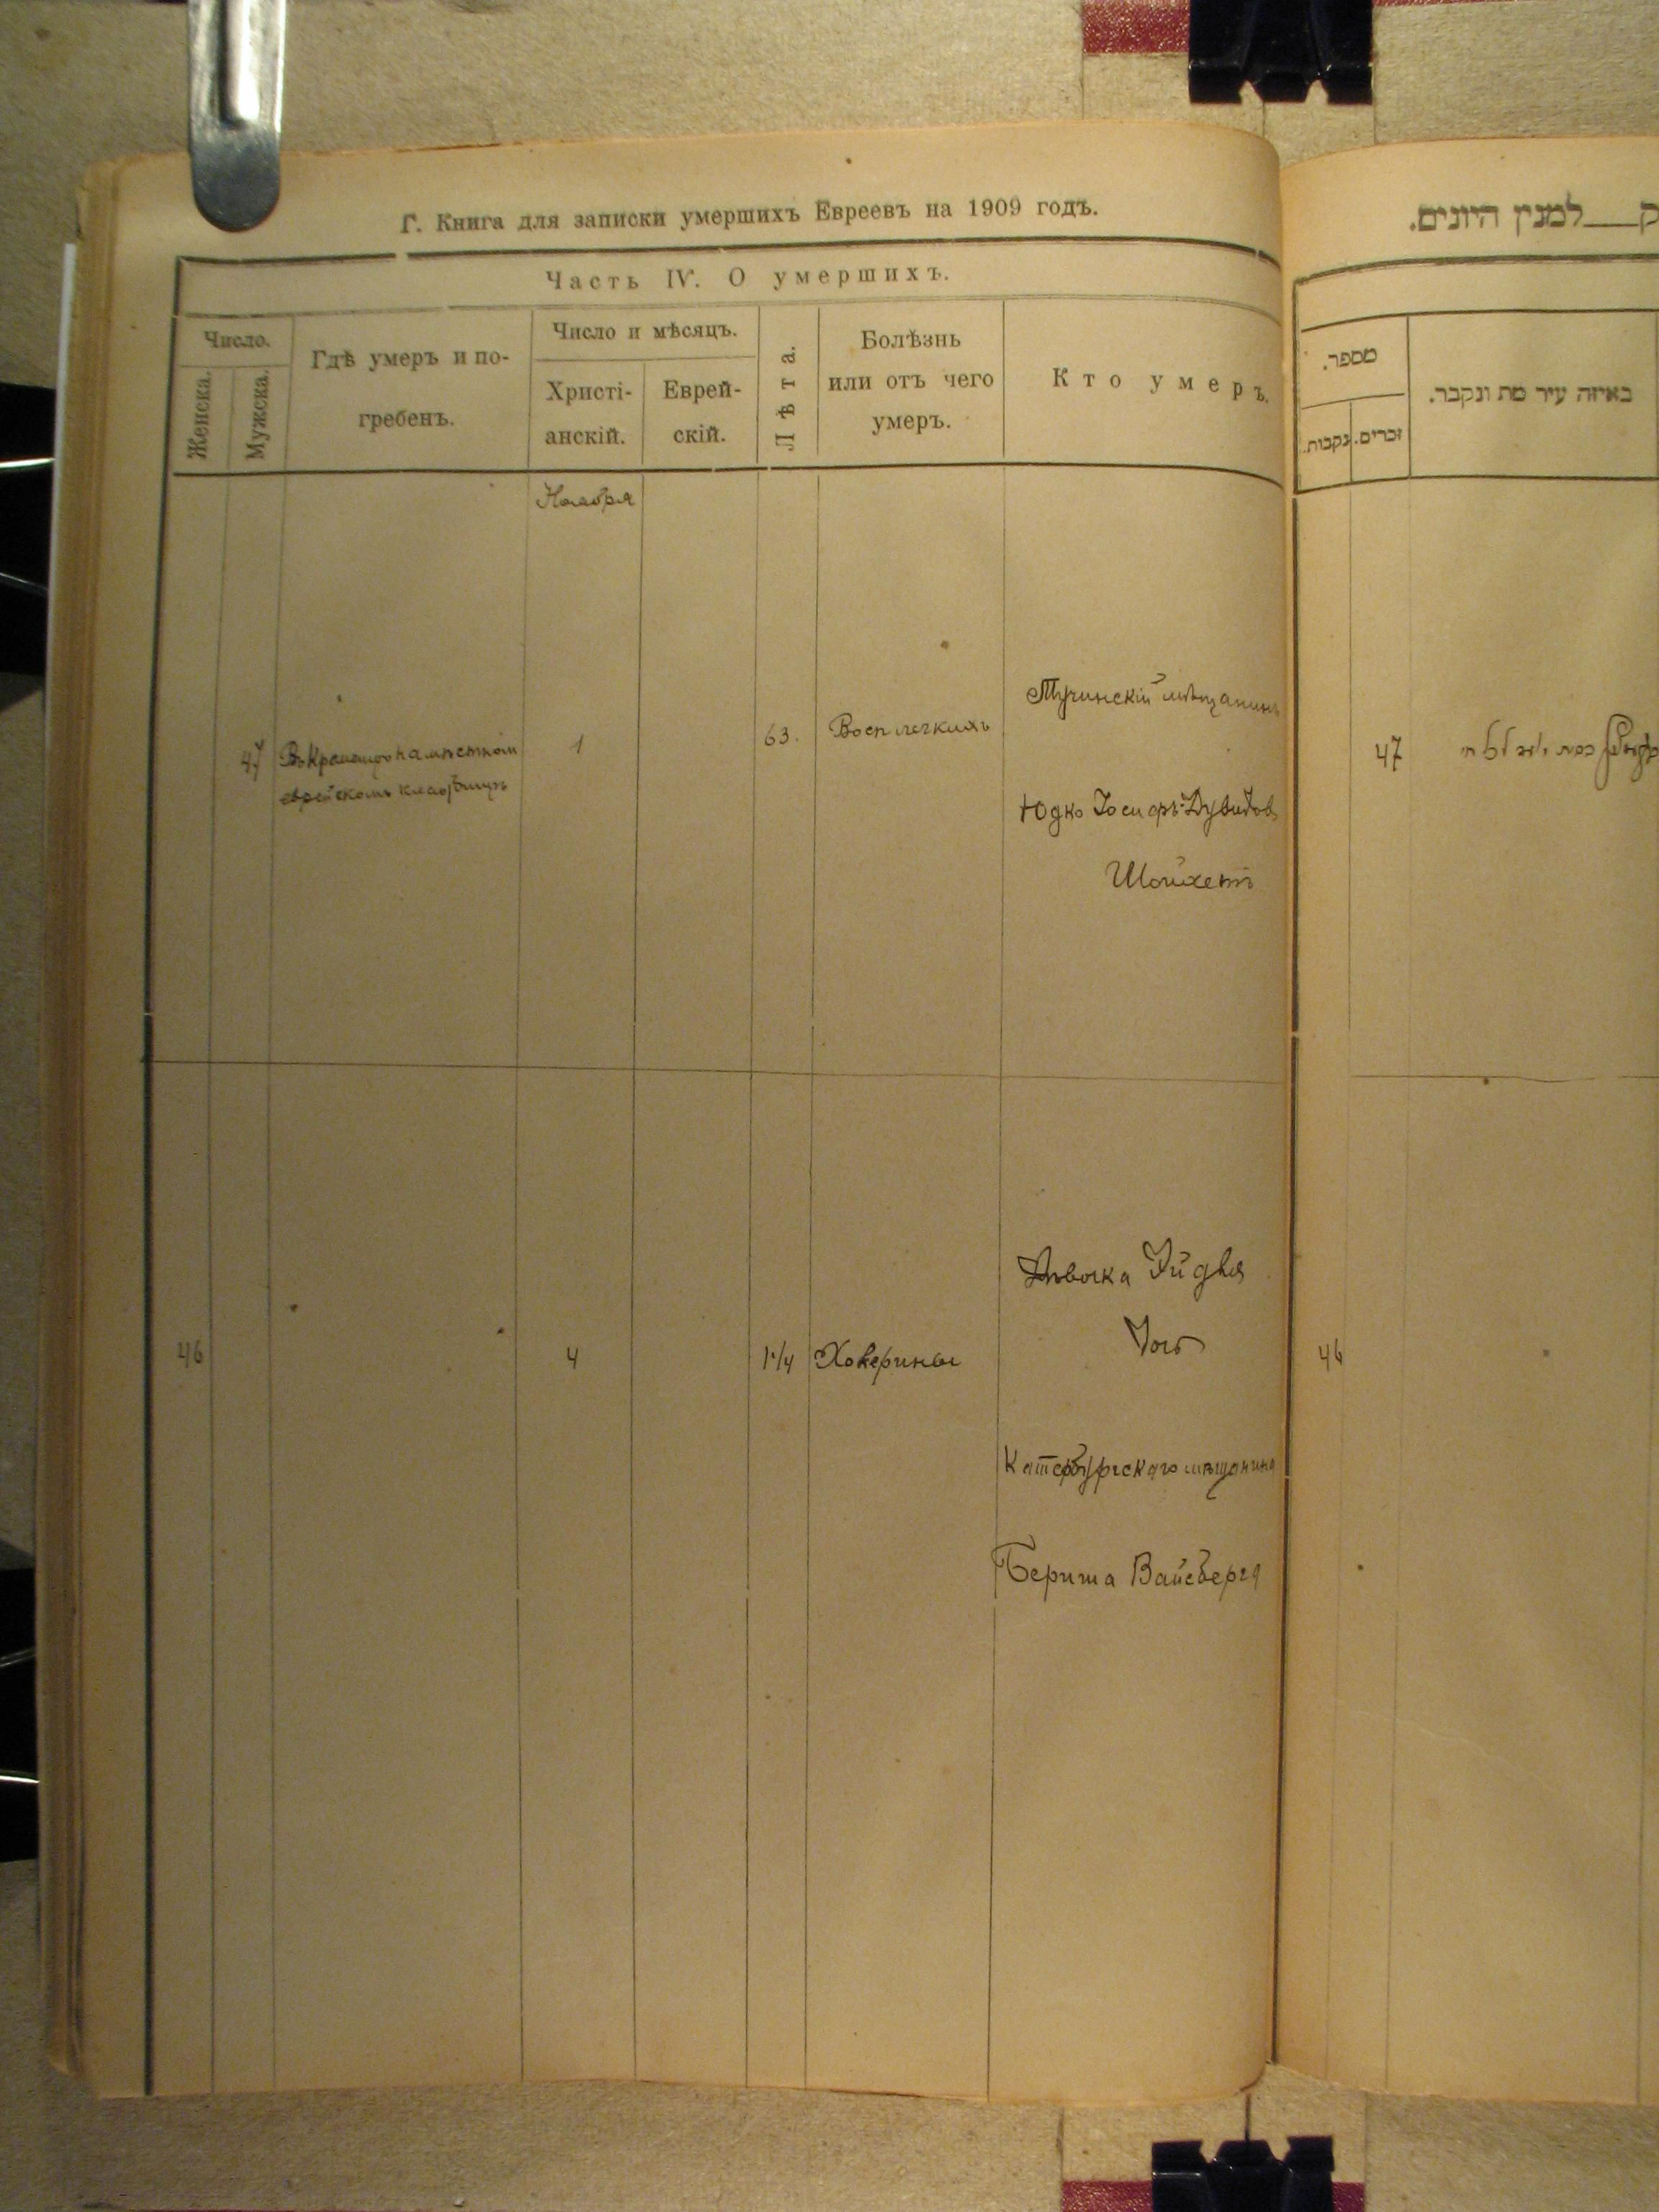 Г. Книга для записки умершихъ Евреевъ на 1909 годъ.
Часть IV. О умершихъ.
Число.
Женска.
Мужска.
Гдѣ умеръ и по-
гребенъ.
Число и мѣсяцъ.
Христі-
анскій.
Еврей-
скій.
Лѣта.
Болѣзнь
или отъ чего
умеръ.
Кто умеръ.
Ноября
47
еврейскомъ кладбищѣ
1
63.
Восп легкихъ
Тучинскій мѣщанинъ
Юдко Іосифъ Дувидов
Шойхетъ
46
4
1 1/4
Холерины
Дѣвочка
Дочь
Катербургскаго мѣщанина
Бериша Вайсберга
למנין היונים.
מספר.
נקבות.
זכרים.
באיזה עיר מת ונקבר.
47
46